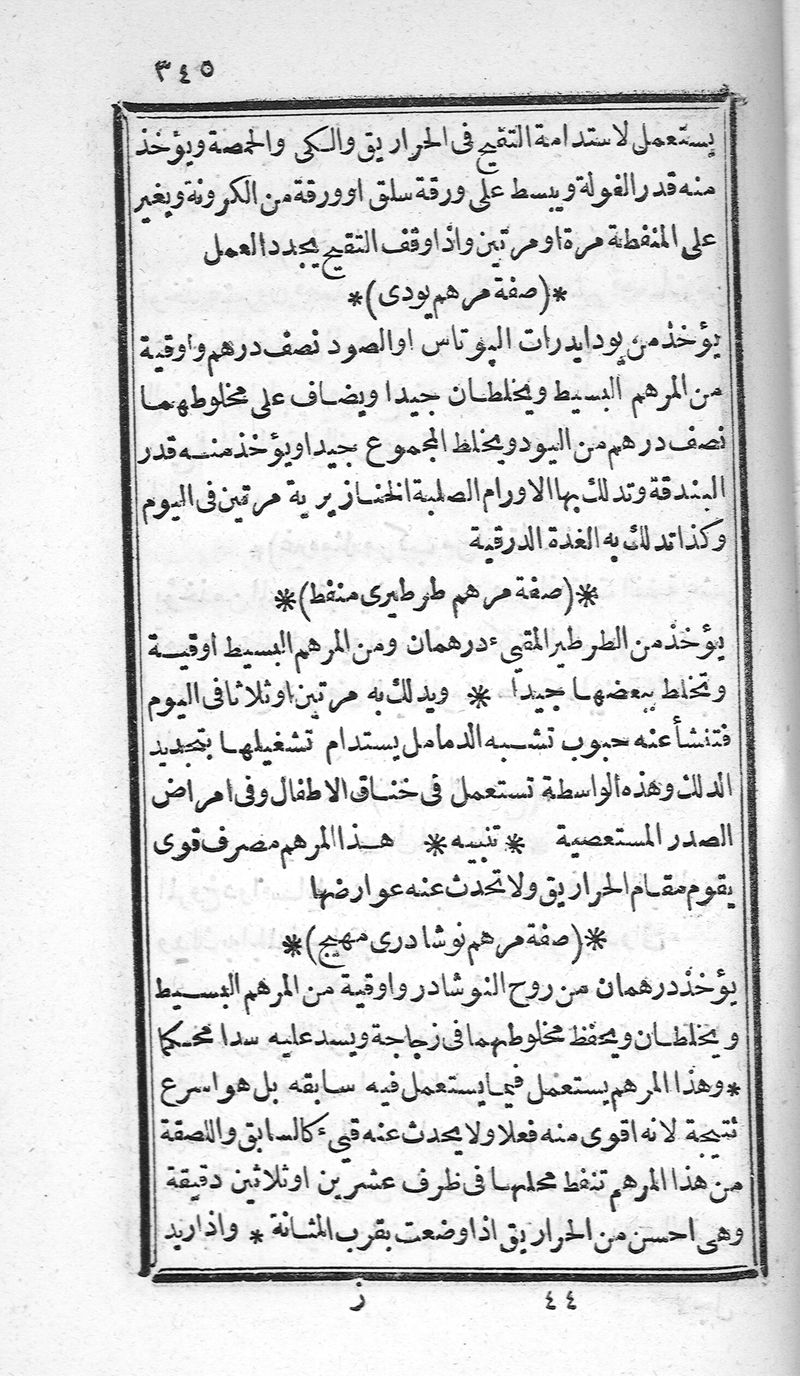 ٣٤٥
يستعمل لاستدامة التقيح فى الحراريق والكى والحمصة ويؤخذ
منه قدر الفولة ويبسط على ورقة سلق او ورقة من الكرونة ويغير
على المنفطة مرة او مرتين واذا وقف التقيح يجدد العمل
*(صفة مرهم يودى)*
يؤخذ من يودايدرات البوتاس او الصود نصف درهم واوقية
من المرهم البسيط ويخلطان جيدا ويضاف على مخلوطهما
نصف درهم من اليود ويخلط المجموع جيدا ويؤخذ منه قدر
البندقة وتدلك بها الاورام الصلبة الخنازيرية مرتين فى اليوم
وكذا تدلك به الغدة الدرقية
*(صفة مرهم طرطيرى منفط)*
يؤخذ من الطرطير المقيئ درهمان ومن المرهم البسيط اوقية
وتخلط ببعضها جيدا * ويدلك به مرتين او ثلاثا فى اليوم
فتنشأ عنه حبوب تشبه الدمامل يستدام تشغيلها بتجديد
الدلك وهذه الواسطة تستعمل فى خناق الاطفال وفى امراض
الصدر المستعصية * تنبيه * هذا المرهم مصرف قوى
يقوم مقام الحراريق ولا تحدث عنه عوارضها
*(صفة مرهم نوشادرى مهيج)*
يؤخذ درهمان من روح النوشادر واوقية من المرهم البسيط
ويخلطان ويحفظ مخلوطهما فى زجاجة ويسد عليه سدا محكما
* وهذا المرهم يستعمل فيما يستعمل فيه سابقه بل هو اسرع
نتيجة لانه اقوى منه فعلا ولا يحدث عنه قيئ كالسابق واللصقة
من هذا المرهم تنفط محلها فى ظرف عشرين او ثلاثين دقيقة
وهى احسن من الحراريق اذا وضعت بقرب المثانة * واذا اريد
٤٤ ز